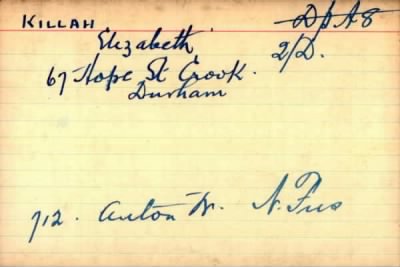 KILLAH D/A8
Elizabeth 2/D.
67 Hope St Crook.
Durham
712. Anton W. N. Fus